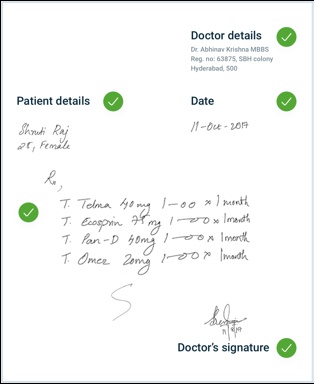 Doctor details
Dr. Abhinav Krishna MBBS
Reg. no: 63875, SBH colony
Hyderabad, 500
Patient details
Date
Shruti Raj
25, Female
11-Oct-2017
Rx,
T. Telma 40mg 1-00 x 1 month
T. Ecosprin 75mg 1-00 x 1 month
T. Pan-D 40mg 1-00 x 1 month
T. Omez 20mg 1-00 x 1 month
Doctor's signature